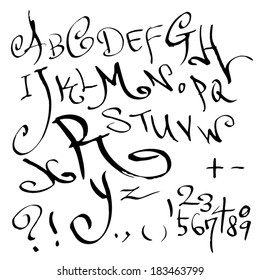 ABCDEFGH
IJKLMNOPQ
RSTUVW
X
YZ + -
? ! . , ( ) 1234567890
shutterstock.com · 183463799